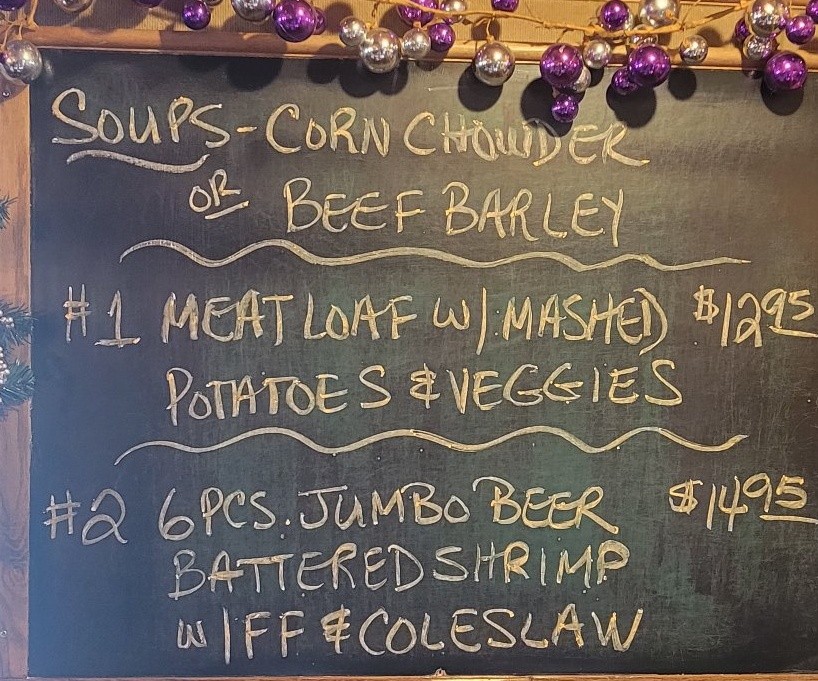 SOUPS - CORN CHOWDER
OR BEEF BARLEY
#1 MEAT LOAF W/ MASHED $12.95
POTATOES & VEGGIES
#2 6 PCS. JUMBO BEER $14.95
BATTERED SHRIMP
W/ FF & COLESLAW